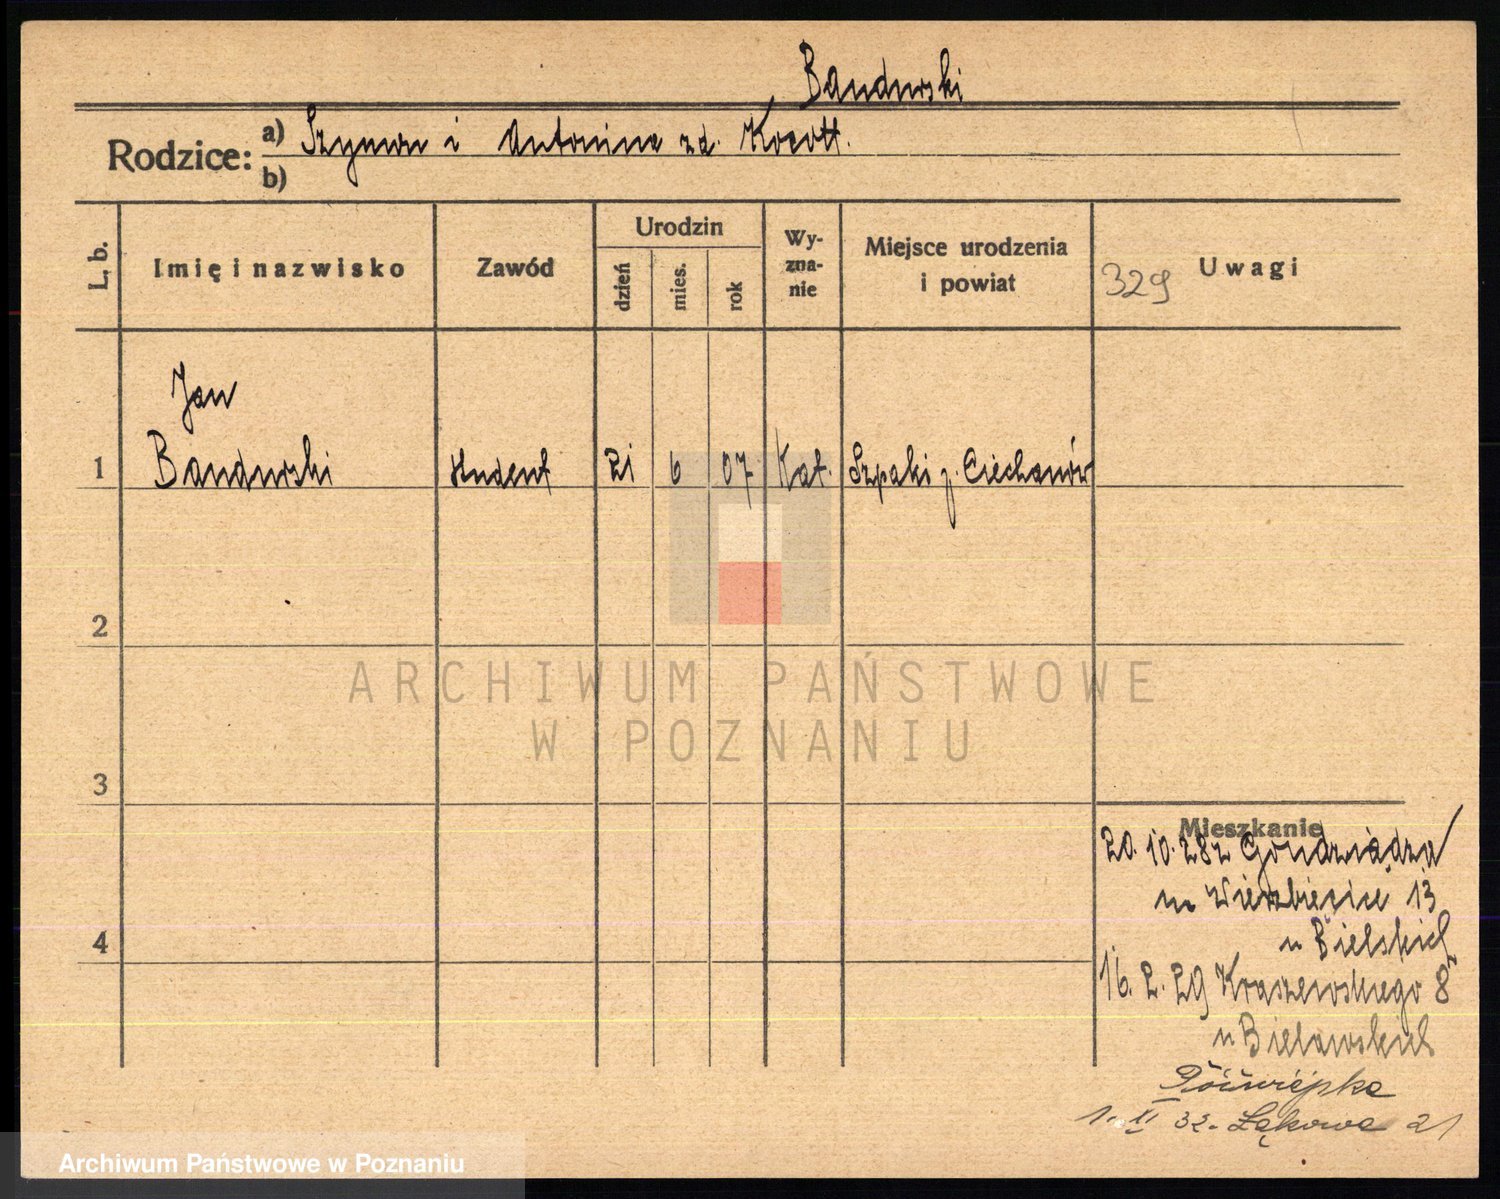 Bandurski
Rodzice: a) Szymon i Antonina zd. Kocott.
b)
L. b.
Imię i nazwisko
Zawód
Urodzin
dzień
mies.
rok
Wy-
zna-
nie
Miejsce urodzenia
i powiat
329 Uwagi
Jan
1 Bandurski student 21 6 07 Kat. Szpaki p. Ciechanów
2
3
4
ARCHIWUM PAŃSTWOWE
W POZNANIU
Mieszkanie
20. 10. 28 z
na Wierzbięcice 13
u Bielskich
16. 2. 29 Kraszewskiego 8
u Bielawskich
1. II 32. Łąkowa 21
Archiwum Państwowe w Poznaniu